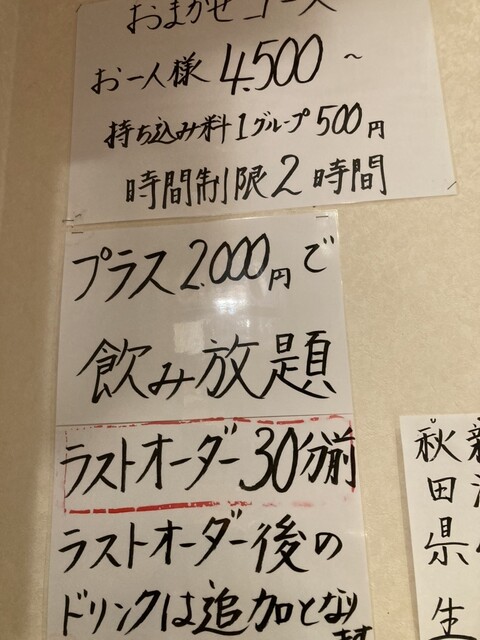 おまかせコース
お一人様 4,500 ～
持ち込み料 1グループ 500円
時間制限 2 時間
プラス 2,000円で
飲み放題
ラストオーダー 30分前
ラストオーダー後の
ドリンクは追加となり
ます
秋田県 生